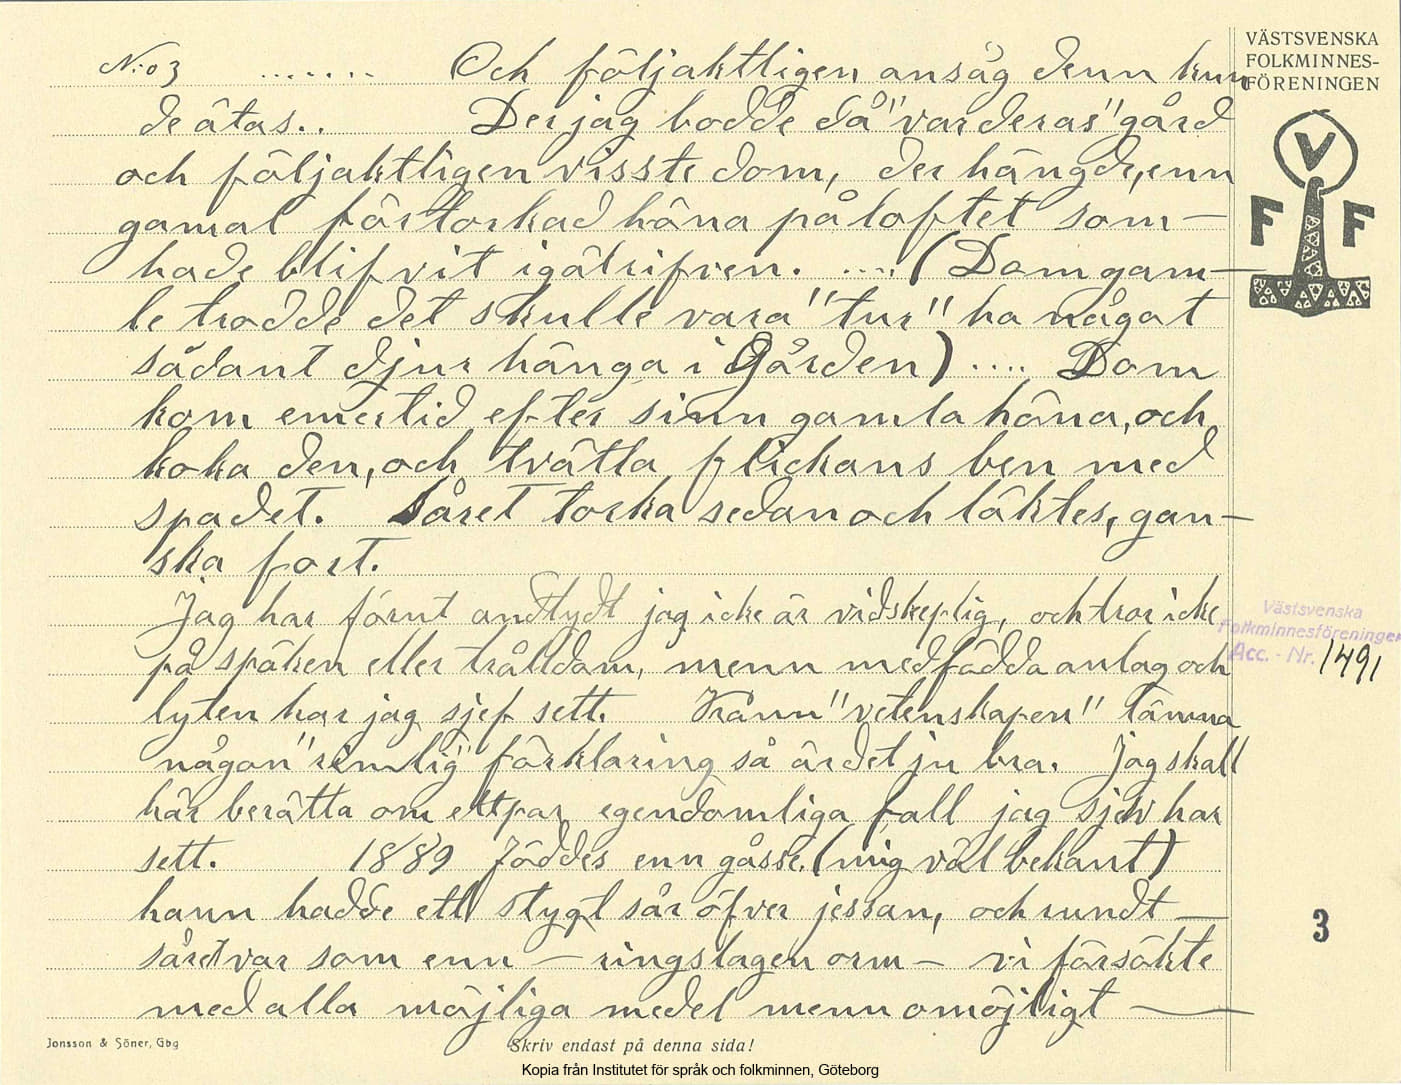 N:o 3 ....... Och följaktligen ansåg denn kun
de ätas.. Der jag bodde då "varderas" gård
och följaktligen visste dom, der hängde, enn
gamal förtorkad höna på loftet som—
hade blifvit igälrifven. .... (Dom gam—
le trodde det skulle vara "tur" ha något
sådant djur hänga i Gården) .... Dom
kom emertid efter sinn gamla höna, och
koka den, och tvätta flickans ben med
spadet. Såret torka sedan och läktes, gan—
ska fort.
Jag har förnt andtydt jag icke är vidskeplig, och tror icke
på spöken eller trålldom, menn medfödda anlag och
lyten har jag sjef sett. Kånn "vetenskapen" lämna
någon "rimlig" förklaring så är det ju bra. Jag skall
här berätta om ett par egendomliga fall jag sjelv har
sett. 1889 föddes enn gåsse. (mig väl bekant)
hann hadde ett stygt sår öfver jessan, och rundt—
såret var som enn — ringslagen orm — vi försökte
med alla möjliga medel menn omöjligt —
VÄSTSVENSKA
FOLKMINNES-
FÖRENINGEN
V
F F
Västsvenska
Folkminnesföreningen
Acc. - Nr. 1491
3
Jonsson & Söner, Gbg
Skriv endast på denna sida!
Kopia från Institutet för språk och folkminnen, Göteborg